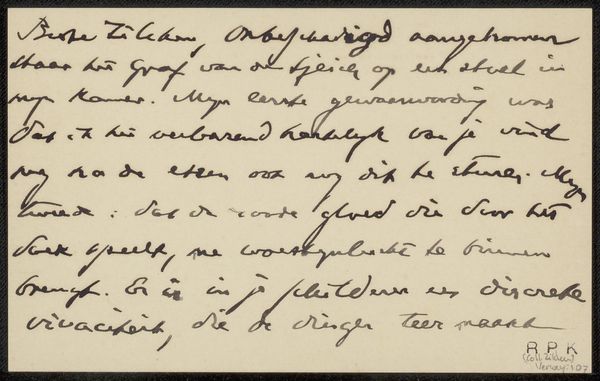 Beste Zilcken, Onbeschadigd aangekomen
staat het Graf van den Sjeich op een stoel in
mijn kamer. Mijn eerste gewaarwording was
dat ik het verbazend hartelijk van je vind
mij na de etsen ook nog dit te sturen. Mijn
tweede: dat de roode gloed die door het
doek speelt, me woestynlucht te binnen
brengt. Er is in je schilderen een discrete
vivaciteit, die de dingen teer maakt
R P K
(Coll. Zilcken)
Verwey: 107